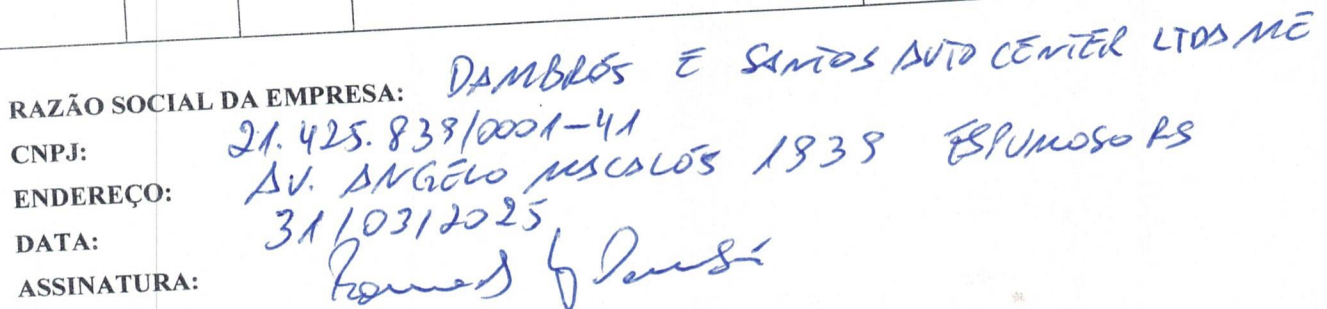 RAZÃO SOCIAL DA EMPRESA: DAMBRÓS E SANTOS AUTO CENTER LTDA ME
CNPJ: 21.425.839/0001-41
ENDEREÇO: AV. ANGÉLO MACALÓS 1939 ESPUMOSO RS
DATA: 31/03/2025
ASSINATURA: